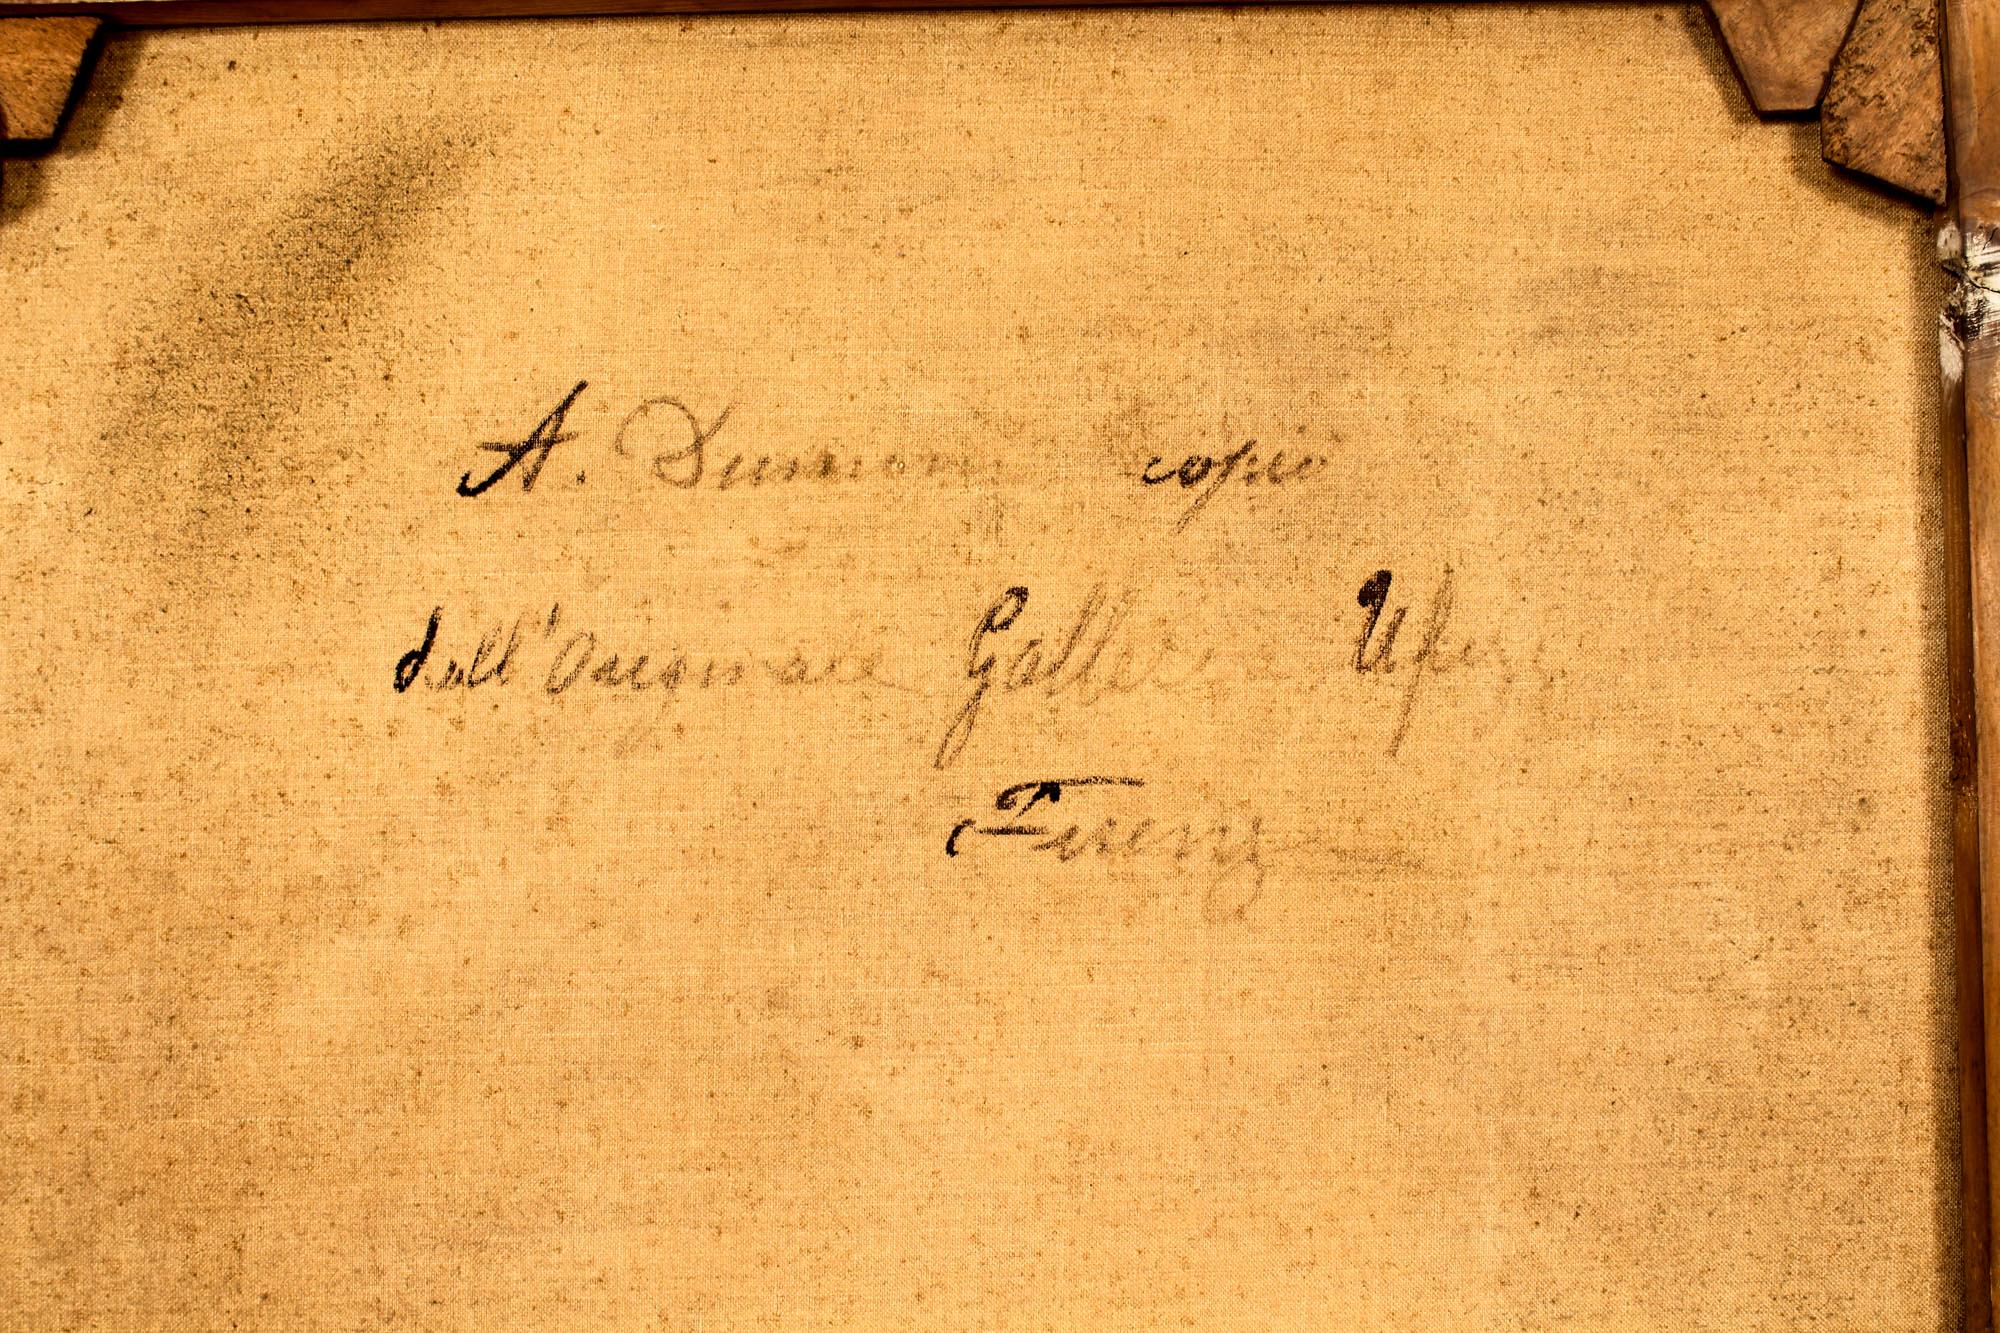 A. copiò
dall'Originale Galleria Ufizi
Firenze